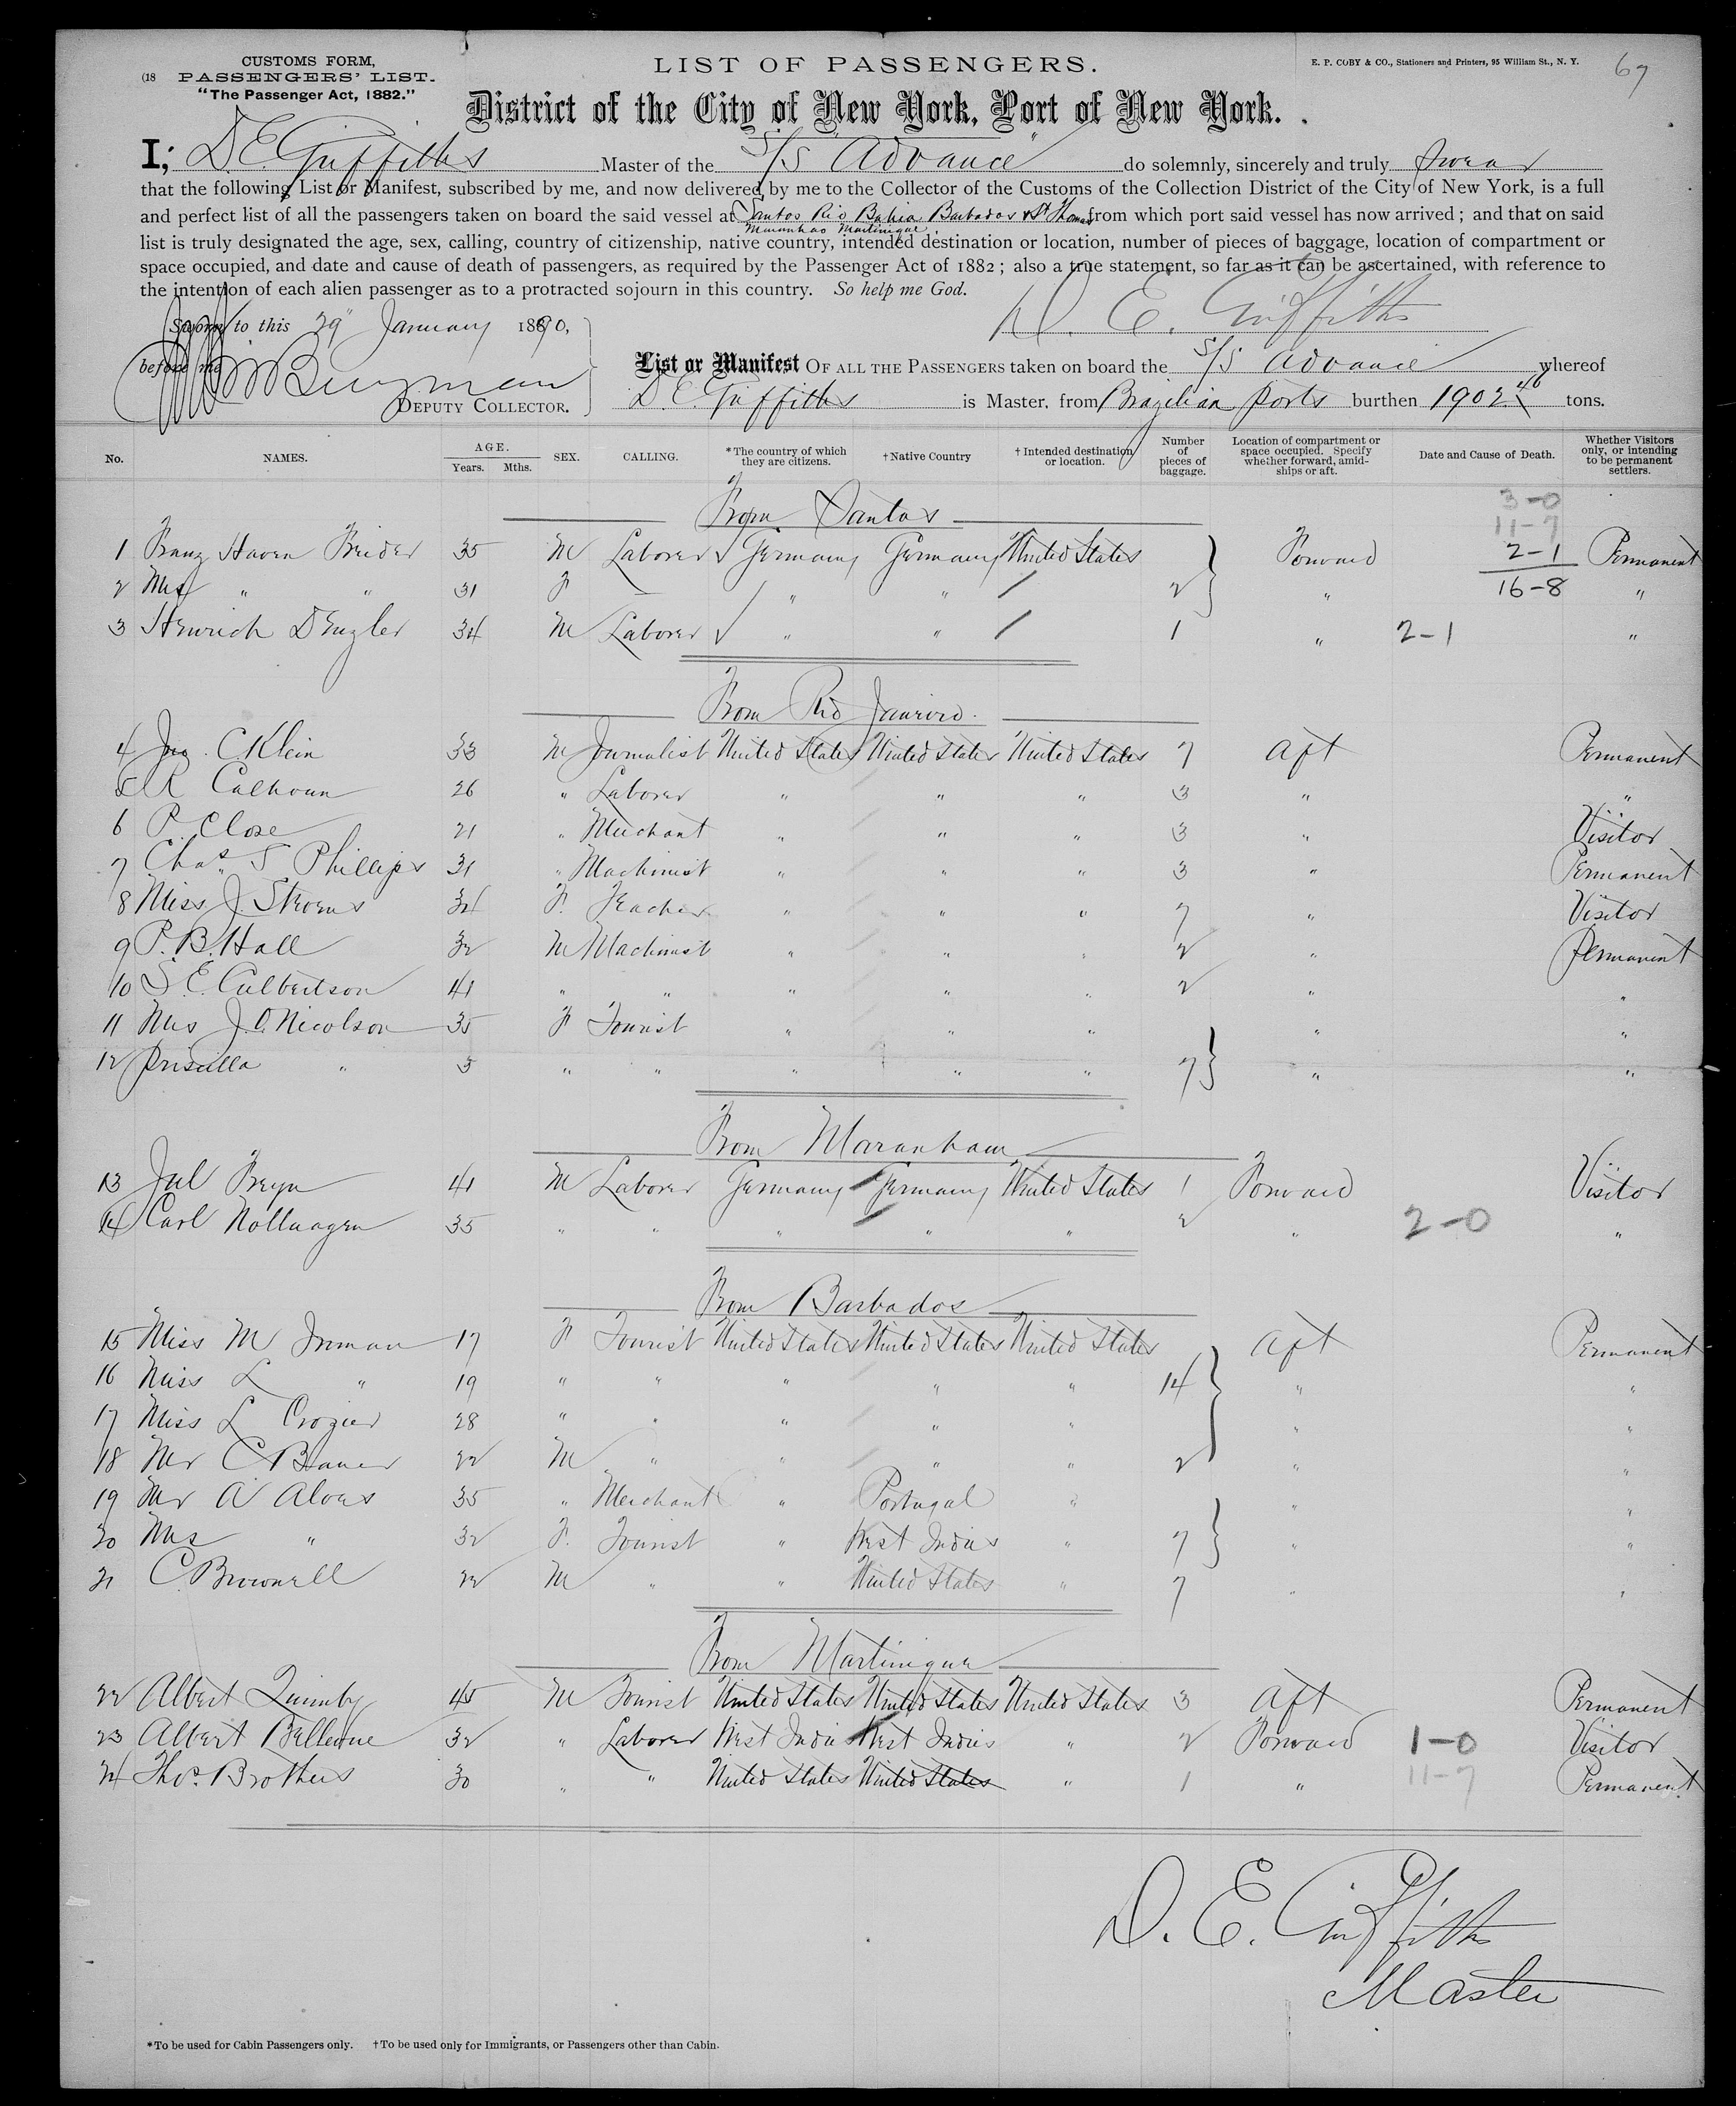 CUSTOMS FORM,
(18 PASSENGERS' LIST.
"The Passenger Act, 1882."
LIST OF PASSENGERS.
E. P. COBY & CO., Stationers and Printers, 95 William St., N. Y.
67
District of the City of New York, Port of New York.
I, D. E. Griffiths Master of the S/S "Advance" do solemnly, sincerely and truly swear
that the following List or Manifest, subscribed by me, and now delivered by me to the Collector of the Customs of the Collection District of the City of New York, is a full
and perfect list of all the passengers taken on board the said vessel at Santos Rio Bahia Barbados & St Thomas from which port said vessel has now arrived; and that on said
Maranhao Martinique
list is truly designated the age, sex, calling, country of citizenship, native country, intended destination or location, number of pieces of baggage, location of compartment or
space occupied, and date and cause of death of passengers, as required by the Passenger Act of 1882; also a true statement, so far as it can be ascertained, with reference to
the intention of each alien passenger as to a protracted sojourn in this country. So help me God.
Sworn to this 29" January 1890,
D. E. Griffiths
before me
DEPUTY COLLECTOR.
List or Manifest OF ALL THE PASSENGERS taken on board the S/S Advance whereof
D. E. Griffiths is Master, from Brazilian Ports burthen 1902 46 tons.
No. NAMES. AGE. Years. Mths. SEX. CALLING. *The country of which they are citizens. †Native Country †Intended destination or location. Number of pieces of baggage. Location of compartment or space occupied. Specify whether forward, amidships or aft. Date and Cause of Death. Whether Visitors only, or intending to be permanent settlers.
3-0
From Santos
11-7
1 Franz Haven 35 M Laborer Germany Germany United States Forward 2-1 Permanent
2 Mrs " " 31 F — " " 2 " 16-8 "
3 Henrich 34 M Laborer " " 1 " 2-1 "
From Rio Janeiro.
4 Jno. C. Klein 33 M Journalist United States United States United States 7 Aft Permanent
5 R Calhoun 26 " Laborer " " " 3 " "
6 P. Close 21 " Merchant " " " 3 " Visitor
7 Chas. S Phillips 31 " Machinist " " " 3 " Permanent
8 Miss J. Stevens 34 F. Teacher " " " 7 " Visitor
9 P. B. Hall 32 M Machinist " " " 2 " Permanent
10 S. E. Culbertson 41 " " " " " 2 " "
11 Mrs J. O. Nicolson 35 F Tourist " " " " "
12 Priscilla " 3 " " " " " 7 " "
From Maranham
13 Jul 41 M Laborer Germany Germany United States 1 Forward Visitor
14 Carl 35 " " " " " 2 " 2-0 "
From Barbados
15 Miss M Inman 17 F Tourist United States United States United States Aft Permanent
16 Miss L " 19 " " " " " 14 " "
17 Miss L Crozier 28 " " " " " " "
18 Mr C Bauer 22 M " " " " 2 " "
19 Mr A Alves 35 " Merchant " Portugal " " "
20 Mrs " 32 F. Tourist " West Indies " 7 " "
21 C. Brownell 22 M " " United States " 7 " "
From Martinique
22 Albert Quimby 45 M Tourist United States United States United States 3 Aft Permanent
23 Albert Bellevue 32 " Laborer West Indies West Indies " 2 Forward 1-0 Visitor
24 Thos. Brothers 30 " " United States United States " 1 " 11-7 Permanent
D. E. Griffiths
Master
*To be used for Cabin Passengers only. †To be used only for Immigrants, or Passengers other than Cabin.